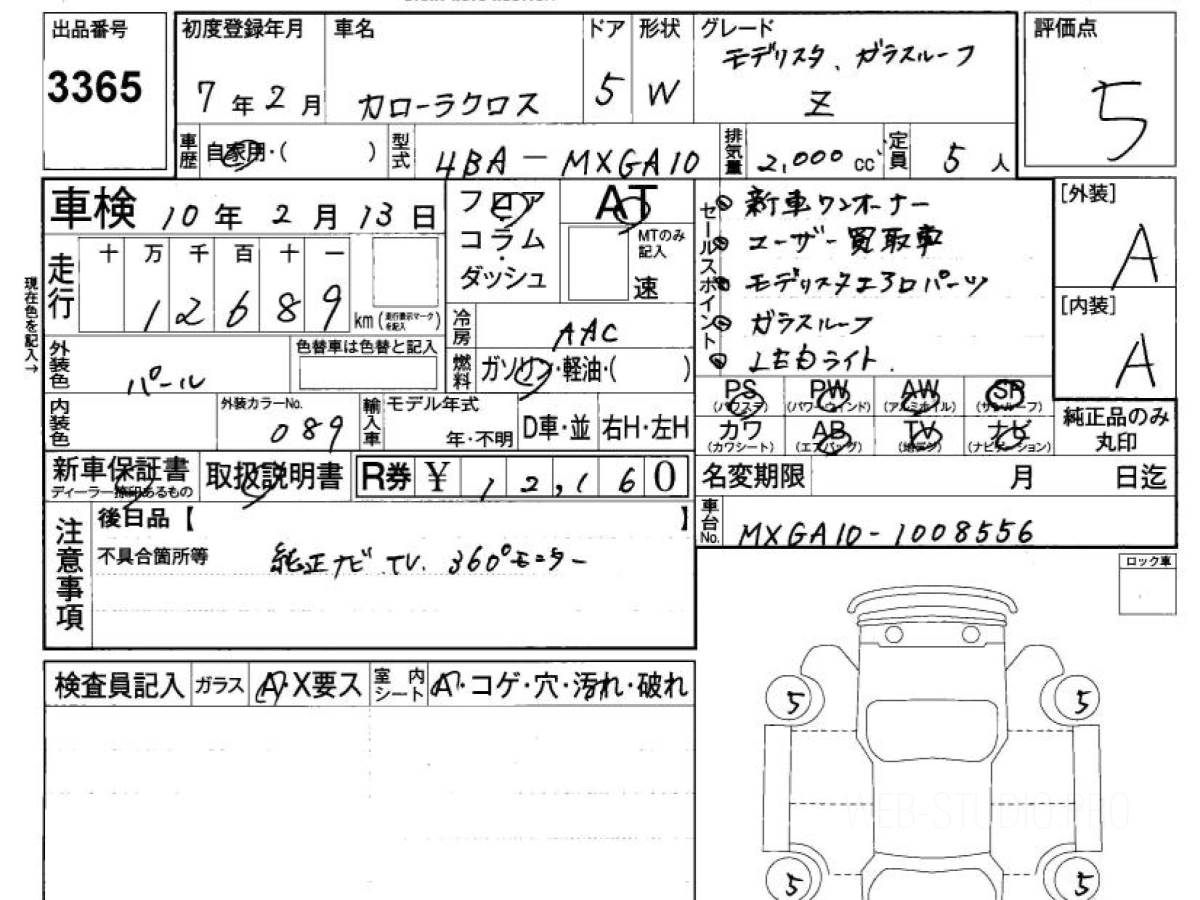 出品番号
3365
初度登録年月
7年2月
車名
カローラクロス
ドア
5
形状
W
グレード
モデリスタ、ガラスルーフ
Z
評価点
5
車歴
自家用・( )
型式
4BA-MXGA10
排気量
2,000 cc
定員
5人
車検
10年2月13日
フロア
コラム
・
ダッシュ
AT
MTのみ
記入
速
セールスポイント
新車ワンオーナー
ユーザー買取車
モデリスタエアロパーツ
ガラスルーフ
LEDライト.
[外装]
A
[内装]
A
現在色を記入→
走行
十 万 千 百 十 一
1 2 6 8 9
km(走行表示マークを記入)
冷房
AAC
外装色
パール
色替車は色替と記入
燃料
ガソリン・軽油・( )
PS
(パワステ)
PW
(パワーウィンド)
AW
(アルミホイル)
SR
(サンルーフ)
カワ
(カワシート)
AB
(エアバッグ)
TV
(地デジ)
ナビ
(ナビゲーション)
純正品のみ
丸印
内装色
外装カラーNo.
089
輸入車
モデル年式
年・不明
D車・並
右H・左H
新車保証書
ディーラー捺印あるもの
取扱説明書
R券 ¥ 12,160
名変期限
月 日迄
車台No.
MXGA10-1008556
注意事項
後日品【 】
不具合箇所等
純正ナビ.TV. 360°モニター
ロック車
検査員記入
ガラス
A・X要ス
室内シート
A・コゲ・穴・汚れ・破れ
5
5
5
5
WEB-STUDIO.PRO